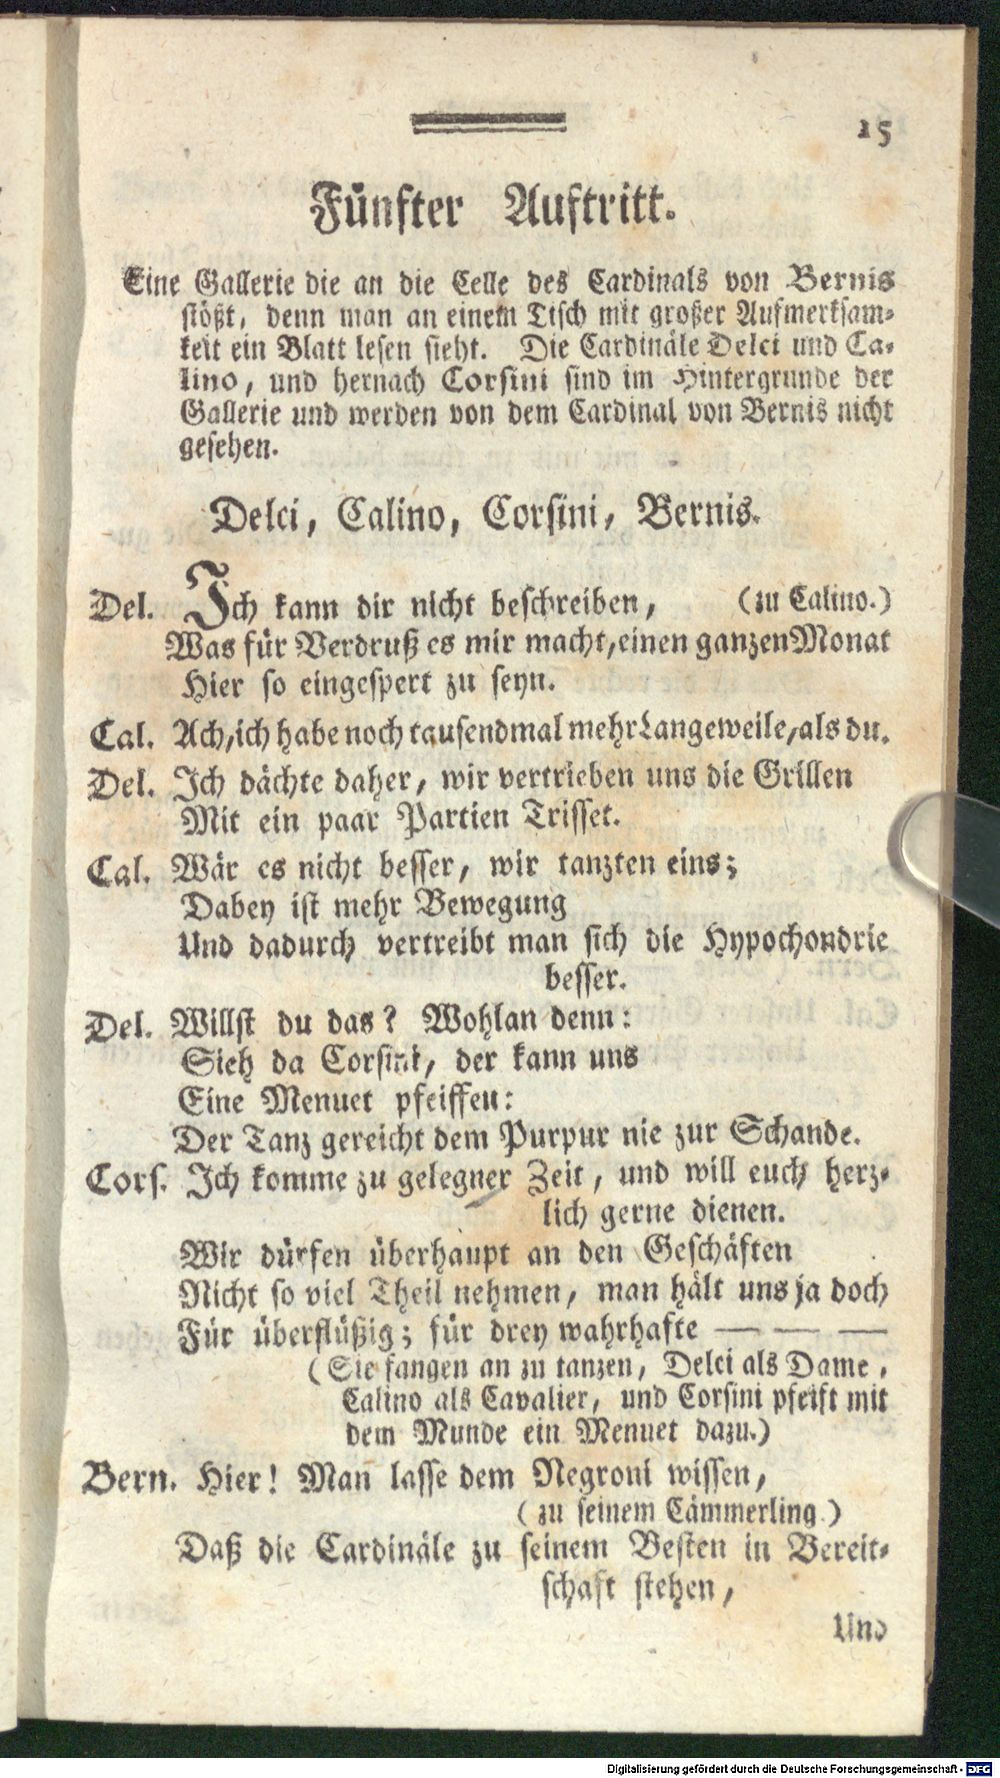 15
Fünfter Auftritt.
Eine Gallerie die an die Celle des Cardinals von Bernis
stößt, denn man an einem Tisch mit großer Aufmerksam-
keit ein Blatt lesen sieht. Die Cardinäle Delci und Ca-
lino, und hernach Corsini sind im Hintergrunde der
Gallerie und werden von dem Cardinal von Bernis nicht
gesehen.
Delci, Calino, Corsini, Bernis.
Del. Ich kann dir nicht beschreiben, (zu Calino.)
Was für Verdruß es mir macht, einen ganzen Monat
Hier so eingespert zu seyn.
Cal. Ach, ich habe noch tausendmal mehr Langeweile, als du.
Del. Ich dächte daher, wir vertrieben uns die Grillen
Mit ein paar Partien Trisset.
Cal. Wär es nicht besser, wir tanzten eins;
Dabey ist mehr Bewegung
Und dadurch vertreibt man sich die Hypochondrie
besser.
Del. Willst du das? Wohlan denn:
Sieh da Corsini, der kann uns
Eine Menuet pfeiffen:
Der Tanz gereicht dem Purpur nie zur Schande.
Cors. Ich komme zu gelegner Zeit, und will euch herz-
lich gerne dienen.
Wir dürfen überhaupt an den Geschäften
Nicht so viel Theil nehmen, man hält uns ja doch
Für überflüßig; für drey wahrhafte — — —
(Sie fangen an zu tanzen, Delci als Dame,
Calino als Cavalier, und Corsini pfeift mit
dem Munde ein Menuet dazu.)
Bern. Hier! Man lasse dem Negroni wissen,
(zu seinem Cämmerling.)
Daß die Cardinäle zu seinem Besten in Bereit-
schaft stehen,
Und
Digitalisierung gefördert durch die Deutsche Forschungsgemeinschaft - DFG